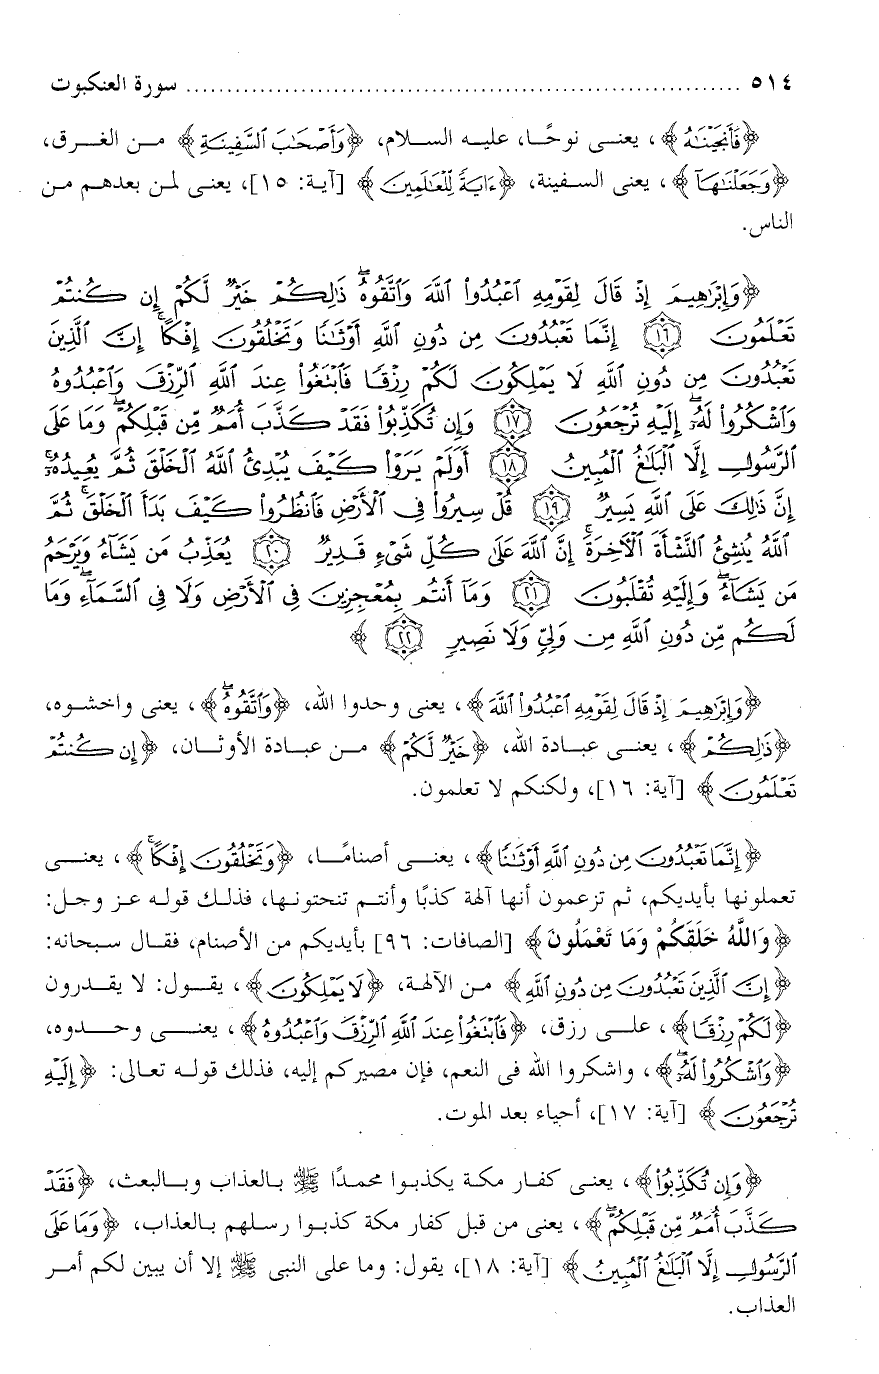 ٥١٤ ........................................ سورة العنكبوت
﴿فَأَنجَيْنَٰهُ﴾، يعنى نوحًا، عليه السلام، ﴿وَأَصْحَٰبَ ٱلسَّفِينَةِ﴾ من الغرق،
﴿وَجَعَلْنَٰهَآ﴾، يعنى السفينة، ﴿ءَايَةً لِّلْعَٰلَمِينَ﴾ [آية: ١٥]، يعنى لمن بعدهم من
الناس.
﴿وَإِبْرَٰهِيمَ إِذْ قَالَ لِقَوْمِهِ ٱعْبُدُوا۟ ٱللَّهَ وَٱتَّقُوهُ ۖ ذَٰلِكُمْ خَيْرٌ لَّكُمْ إِن كُنتُمْ
تَعْلَمُونَ ١٦ إِنَّمَا تَعْبُدُونَ مِن دُونِ ٱللَّهِ أَوْثَٰنًا وَتَخْلُقُونَ إِفْكًا ۚ إِنَّ ٱلَّذِينَ
تَعْبُدُونَ مِن دُونِ ٱللَّهِ لَا يَمْلِكُونَ لَكُمْ رِزْقًا فَٱبْتَغُوا۟ عِندَ ٱللَّهِ ٱلرِّزْقَ وَٱعْبُدُوهُ
وَٱشْكُرُوا۟ لَهُۥٓ ۖ إِلَيْهِ تُرْجَعُونَ ١٧ وَإِن تُكَذِّبُوا۟ فَقَدْ كَذَّبَ أُمَمٌ مِّن قَبْلِكُمْ ۖ وَمَا عَلَى
ٱلرَّسُولِ إِلَّا ٱلْبَلَٰغُ ٱلْمُبِينُ ١٨ أَوَلَمْ يَرَوْا۟ كَيْفَ يُبْدِئُ ٱللَّهُ ٱلْخَلْقَ ثُمَّ يُعِيدُهُۥٓ ۚ
إِنَّ ذَٰلِكَ عَلَى ٱللَّهِ يَسِيرٌ ١٩ قُلْ سِيرُوا۟ فِى ٱلْأَرْضِ فَٱنظُرُوا۟ كَيْفَ بَدَأَ ٱلْخَلْقَ ۚ ثُمَّ
ٱللَّهُ يُنشِئُ ٱلنَّشْأَةَ ٱلْءَاخِرَةَ ۚ إِنَّ ٱللَّهَ عَلَىٰ كُلِّ شَىْءٍ قَدِيرٌ ٢٠ يُعَذِّبُ مَن يَشَآءُ وَيَرْحَمُ
مَن يَشَآءُ ۖ وَإِلَيْهِ تُقْلَبُونَ ٢١ وَمَآ أَنتُم بِمُعْجِزِينَ فِى ٱلْأَرْضِ وَلَا فِى ٱلسَّمَآءِ ۖ وَمَا
لَكُم مِّن دُونِ ٱللَّهِ مِن وَلِىٍّ وَلَا نَصِيرٍ ٢٢﴾
﴿وَإِبْرَٰهِيمَ إِذْ قَالَ لِقَوْمِهِ ٱعْبُدُوا۟ ٱللَّهَ﴾، يعنى وحدوا الله، ﴿وَٱتَّقُوهُ ۖ﴾، يعنى واخشوه،
﴿ذَٰلِكُمْ﴾، يعنى عبادة الله، ﴿خَيْرٌ لَّكُمْ﴾ من عبادة الأوثان، ﴿إِن كُنتُمْ
تَعْلَمُونَ﴾ [آية: ١٦]، ولكنكم لا تعلمون.
﴿إِنَّمَا تَعْبُدُونَ مِن دُونِ ٱللَّهِ أَوْثَٰنًا﴾، يعنى أصنامًا، ﴿وَتَخْلُقُونَ إِفْكًا ۚ﴾، يعنى
تعملونها بأيديكم، ثم تزعمون أنها آلهة كذبًا وأنتم تنحتونها، فذلك قوله عز وجل:
﴿وَاللَّهُ خَلَقَكُمْ وَمَا تَعْمَلُونَ﴾ [الصافات: ٩٦] بأيديكم من الأصنام، فقال سبحانه:
﴿إِنَّ ٱلَّذِينَ تَعْبُدُونَ مِن دُونِ ٱللَّهِ﴾ من الآلهة، ﴿لَا يَمْلِكُونَ﴾، يقول: لا يقدرون
﴿لَكُمْ رِزْقًا﴾، على رزق، ﴿فَٱبْتَغُوا۟ عِندَ ٱللَّهِ ٱلرِّزْقَ وَٱعْبُدُوهُ﴾، يعنى وحدوه،
﴿وَٱشْكُرُوا۟ لَهُۥٓ ۖ﴾، واشكروا الله فى النعم، فإن مصيركم إليه، فذلك قوله تعالى: ﴿إِلَيْهِ
تُرْجَعُونَ﴾ [آية: ١٧]، أحياء بعد الموت.
﴿وَإِن تُكَذِّبُوا۟﴾، يعنى كفار مكة يكذبوا محمدًا ﷺ بالعذاب وبالبعث، ﴿فَقَدْ
كَذَّبَ أُمَمٌ مِّن قَبْلِكُمْ ۖ﴾، يعنى من قبل كفار مكة كذبوا رسلهم بالعذاب، ﴿وَمَا عَلَى
ٱلرَّسُولِ إِلَّا ٱلْبَلَٰغُ ٱلْمُبِينُ﴾ [آية: ١٨]، يقول: وما على النبى ﷺ إلا أن يبين لكم أمر
العذاب.